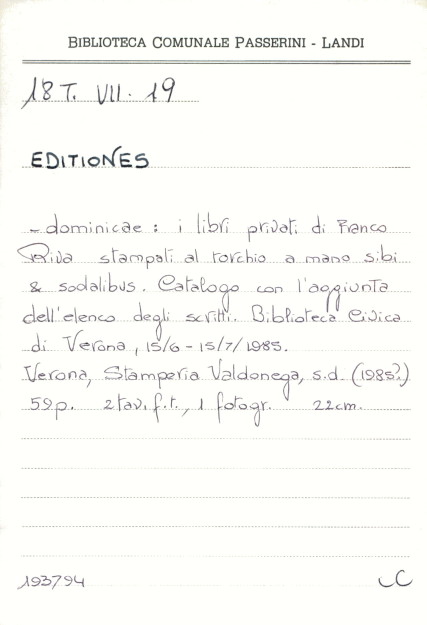 BIBLIOTECA COMUNALE PASSERINI - LANDI
18 T. VII. 19
EDITIONES
- dominicae : i libri privati di Franco
Riva stampati al torchio a mano sibi
& sodalibus. Catalogo con l'aggiunta
dell'elenco degli scritti. Biblioteca Civica
di Verona, 15/6 - 15/7/1985.
Verona, Stamperia Valdonega, s.d. (1985?)
59p. 2 tav. f.t., 1 fotogr. 22cm.
193794